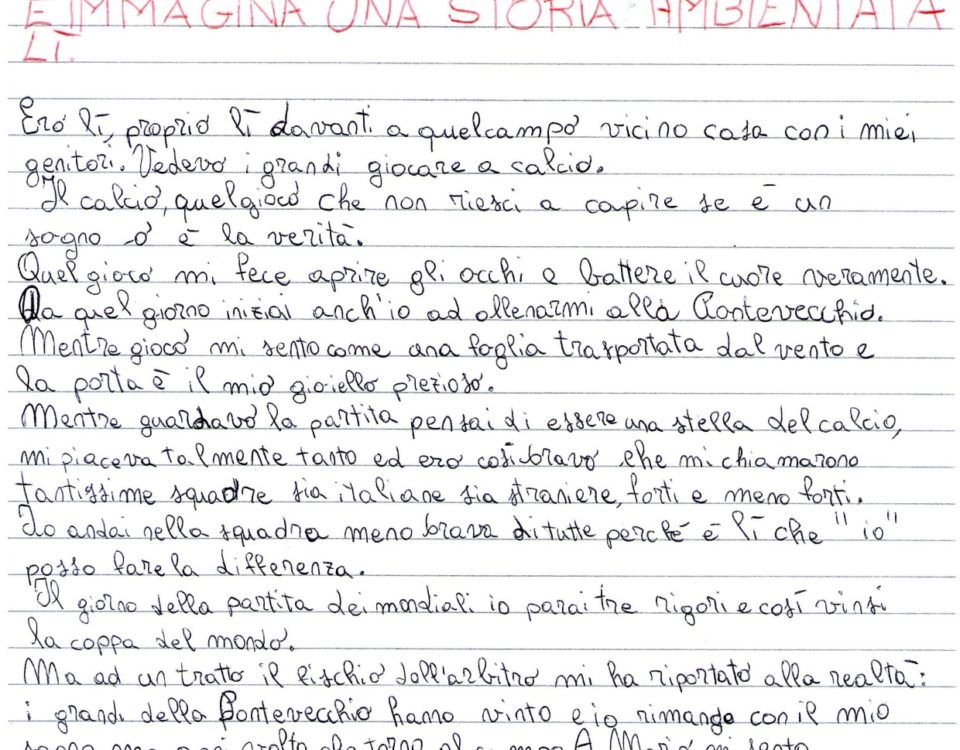 E IMMAGINA UNA STORIA AMBIENTATA
LÌ.
Ero lì, proprio lì davanti a quelcampo vicino casa con i miei
genitori. Vedevo i grandi giocare a calcio.
Il calcio, quel gioco che non riesci a capire se è un
sogno o è la verità.
Quel gioco mi fece aprire gli occhi e battere il cuore veramente.
Da quel giorno iniziai anch'io ad allenarmi alla Pontevecchio.
Mentre gioco mi sento come una foglia trasportata dal vento e
la porta è il mio gioiello prezioso.
Mentre guardavo la partita pensai di essere una stella del calcio,
mi piaceva talmente tanto ed ero così bravo che mi chiamarono
tantissime squadre sia italiane sia straniere, forti e meno forti.
Io andai nella squadra meno brava di tutte perché è lì che "io"
posso fare la differenza.
Il giorno della partita dei mondiali io parai tre rigori e così vinsi
la coppa del mondo.
Ma ad un tratto il fischio dell'arbitro mi ha riportato alla realtà:
i grandi della Pontevecchio hanno vinto e io rimango con il mio
sogno ma ogni volta che torno al campo A. Maria mi sento